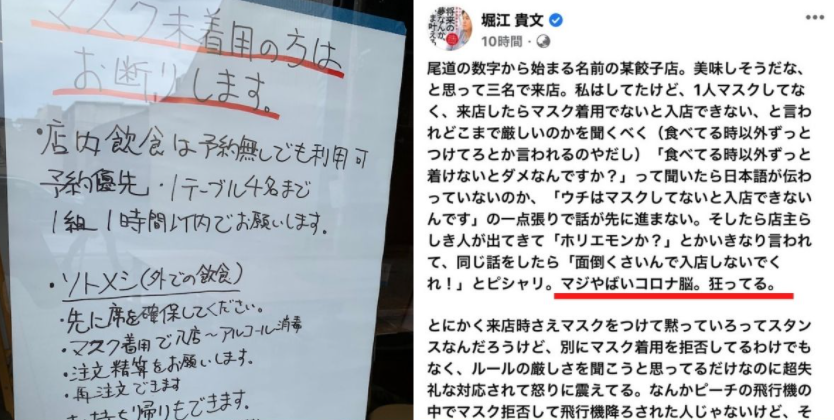 マスク未着用の方は
お断りします。
・店内飲食は予約無しでも利用可
予約優先・1テーブル4名まで
1組1時間以内でお願いします。
・ソトメシ(外での飲食)
・先に席を確保してください。
・マスク着用で入店〜アルコール消毒
・注文精算をお願いします。
・再注文できます
お持ち帰りもできます。
将来の
夢なんか、
いま叶えろ。
堀江 貴文
10時間
尾道の数字から始まる名前の某餃子店。美味しそうだな、
と思って三名で来店。私はしてたけど、1人マスクしてな
く、来店したらマスク着用でないと入店できない、と言わ
れどこまで厳しいのかを聞くべく(食べてる時以外ずっと
つけてろとか言われるのやだし)「食べてる時以外ずっと
着けないとダメなんですか?」って聞いたら日本語が伝わ
っていないのか、「ウチはマスクしてないと入店できない
んです」の一点張りで話が先に進まない。そしたら店主ら
しき人が出てきて「ホリエモンか?」とかいきなり言われ
て、同じ話をしたら「面倒くさいんで入店しないでく
れ!」とピシャリ。マジやばいコロナ脳。狂ってる。
とにかく来店時さえマスクをつけて黙っていろってスタン
スなんだろうけど、別にマスク着用を拒否してるわけでも
なく、ルールの厳しさを聞こうと思ってるだけなのに超失
礼な対応されて怒りに震えてる。なんかピーチの飛行機の
中でマスク拒否して飛行機降ろされた人じゃないけど、そ